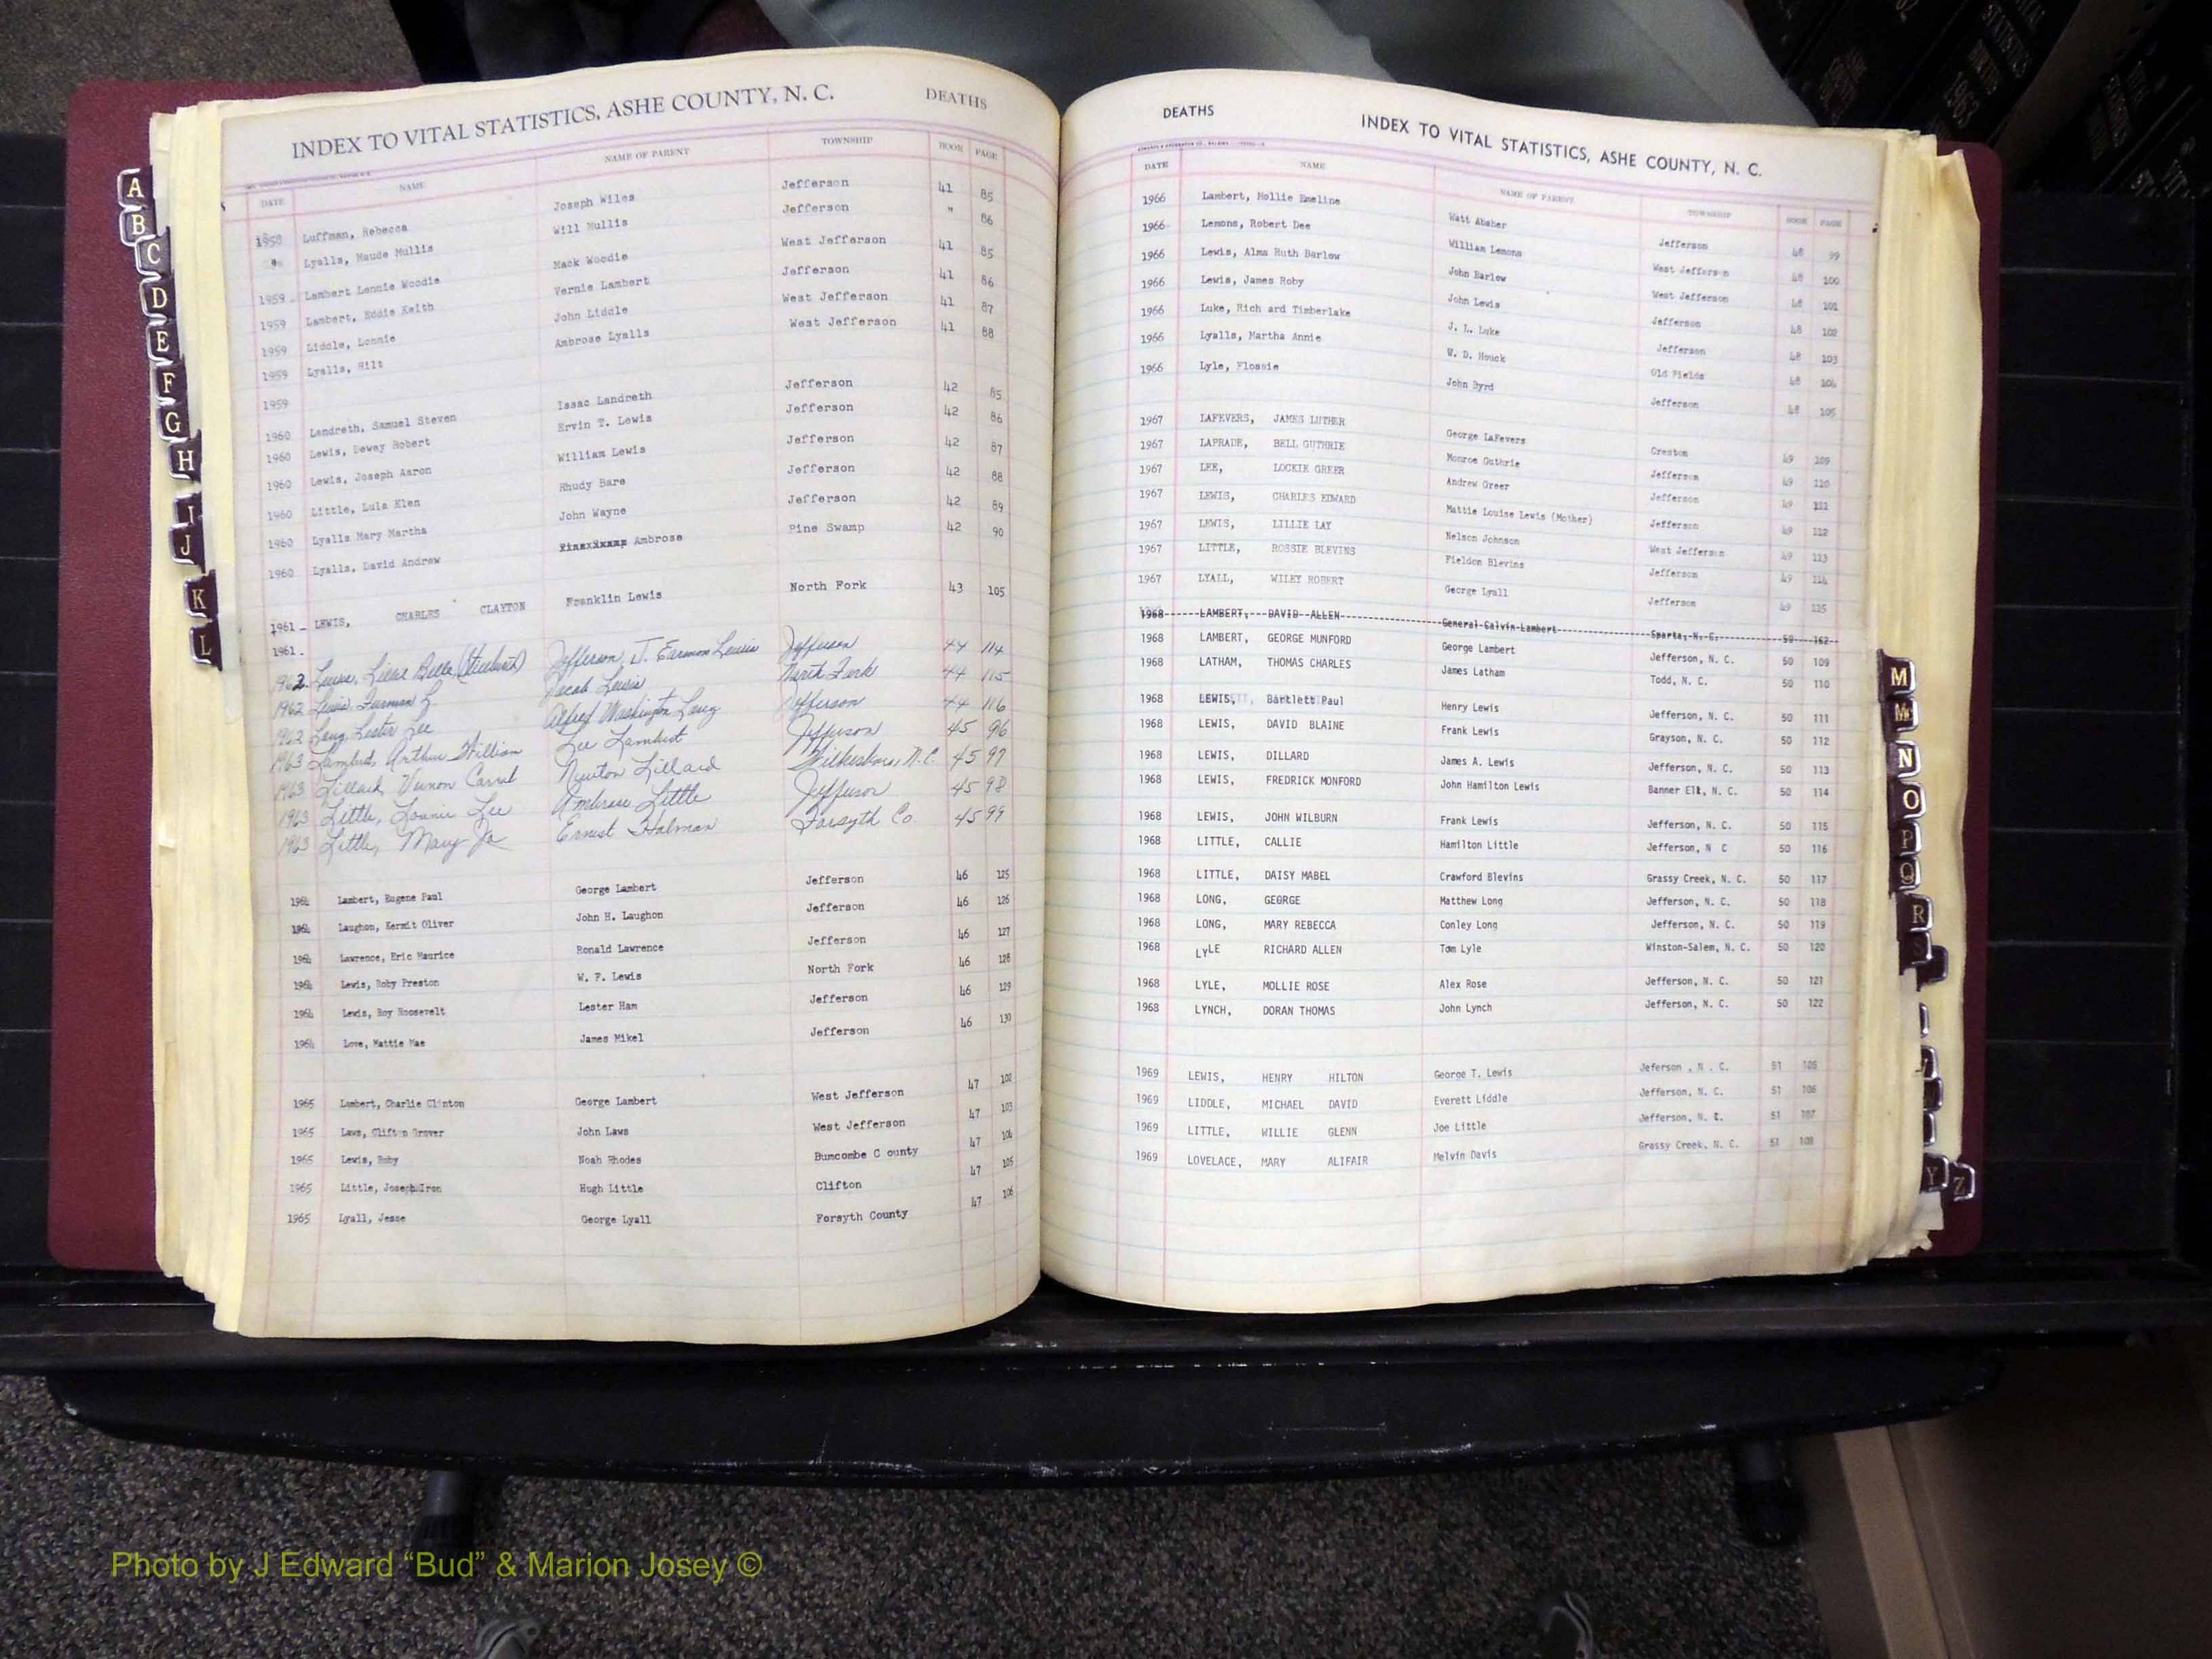 INDEX TO VITAL STATISTICS, ASHE COUNTY, N. C. DEATHS
DATE NAME NAME OF PARENT TOWNSHIP BOOK PAGE
1958 Luffman, Rebecca Joseph Wiles Jefferson 41 85
" Lyalls, Maude Mullis Will Mullis Jefferson " 86
1959 Lambert Lennie Woodie Mack Woodie West Jefferson 41 85
1959 Lambert, Eddie Keith Vernie Lambert Jefferson 41 86
1959 Liddle, Lonnie John Liddle West Jefferson 41 87
1959 Lyalls, Hilt Ambrose Lyalls West Jefferson 41 88
1959
1960 Landreth, Samuel Steven Issac Landreth Jefferson 42 85
1960 Lewis, Dewey Robert Ervin T. Lewis Jefferson 42 86
1960 Lewis, Joseph Aaron William Lewis Jefferson 42 87
1960 Little, Lula Elen Rhudy Bare Jefferson 42 88
1960 Lyalls Mary Martha John Wayne Jefferson 42 89
1960 Lyalls, David Andrew Ambrose Pine Swamp 42 90
1961 LEWIS, CHARLES CLAYTON Franklin Lewis North Fork 43 105
1961
1962 Lewis, Belle Jefferson J. Earmon Lewis Jefferson 44 114
1962 Lewis Furman L. Jacob Lewis North Fork 44 115
1962 Long, Lester Lee Alfred Washington Long Jefferson 44 116
1963 Lambert, Arthur William Lee Lambert Jefferson 45 96
1963 Lillard, Vernon Carral Newton Lillard Wilkesboro, N.C. 45 97
1963 Little, Lonnie Lee Ambrose Little Jefferson 45 98
1963 Little, Mary Jo Ernest Halman Forsyth Co. 45 99
1964 Lambert, Eugene Paul George Lambert Jefferson 46 125
1964 Laughon, Kermit Oliver John H. Laughon Jefferson 46 126
1964 Lawrence, Eric Maurice Ronald Lawrence Jefferson 46 127
1964 Lewis, Roby Preston W. F. Lewis North Fork 46 128
1964 Lewis, Roy Roosevelt Lester Ham Jefferson 46 129
1964 Love, Mattie Mae James Mikel Jefferson 46 130
1965 Lambert, Charlie Clinton George Lambert West Jefferson 47 102
1965 Laws, Clifton Grover John Laws West Jefferson 47 103
1965 Lewis, Ruby Noah Rhodes Bumcombe C ounty 47 104
1965 Little, Joseph Iron Hugh Little Clifton 47 105
1965 Lyall, Jesse George Lyall Forsyth County 47 106
DEATHS INDEX TO VITAL STATISTICS, ASHE COUNTY, N. C.
DATE NAME NAME OF PARENT TOWNSHIP BOOK PAGE
1966 Lambert, Mollie Emeline Watt Absher Jefferson 48 99
1966 Lemons, Robert Dee William Lemons West Jefferson 48 100
1966 Lewis, Alma Ruth Barlow John Barlow West Jefferson 48 101
1966 Lewis, James Roby John Lewis Jefferson 48 102
1966 Luke, Rich ard Timberlake J. L. Luke Jefferson 48 103
1966 Lyalls, Martha Annie W. D. Houck Old Fields 48 104
1966 Lyle, Flossie John Byrd Jefferson 48 105
1967 LAFEVERS, JAMES LUTHER George LaFevers Creston 49 109
1967 LAPRADE, BELL GUTHRIE Monroe Guthrie Jefferson 49 110
1967 LEE, LOCKIE GREER Andrew Greer Jefferson 49 111
1967 LEWIS, CHARLES EDWARD Mattie Louise Lewis (Mother) Jefferson 49 112
1967 LEWIS, LILLIE LAY Nelson Johnson West Jefferson 49 113
1967 LITTLE, ROSSIE BLEVINS Fieldon Blevins Jefferson 49 114
1967 LYALL, WILEY ROBERT George Lyall Jefferson 49 115
1968 LAMBERT, DAVID ALLEN General Calvin Lambert Sparta, N. C. 50 162
1968 LAMBERT, GEORGE MUNFORD George Lambert Jefferson, N. C. 50 109
1968 LATHAM, THOMAS CHARLES James Latham Todd, N. C. 50 110
1968 LEWIS, Bartlett Paul Henry Lewis Jefferson, N. C. 50 111
1968 LEWIS, DAVID BLAINE Frank Lewis Grayson, N. C. 50 112
1968 LEWIS, DILLARD James A. Lewis Jefferson, N. C. 50 113
1968 LEWIS, FREDRICK MONFORD John Hamilton Lewis Banner Elk, N. C. 50 114
1968 LEWIS, JOHN WILBURN Frank Lewis Jefferson, N. C. 50 115
1968 LITTLE, CALLIE Hamilton Little Jefferson, N C 50 116
1968 LITTLE, DAISY MABEL Crawford Blevins Grassy Creek, N. C. 50 117
1968 LONG, GEORGE Matthew Long Jefferson, N. C. 50 118
1968 LONG, MARY REBECCA Conley Long Jefferson, N. C. 50 119
1968 LYLE RICHARD ALLEN Tom Lyle Winston-Salem, N. C. 50 120
1968 LYLE, MOLLIE ROSE Alex Rose Jefferson, N. C. 50 121
1968 LYNCH, DORAN THOMAS John Lynch Jefferson, N. C. 50 122
1969 LEWIS, HENRY HILTON George T. Lewis Jeferson , N . C. 51 105
1969 LIDDLE, MICHAEL DAVID Everett Liddle Jefferson, N. C. 51 106
1969 LITTLE, WILLIE GLENN Joe Little Jefferson, N. C. 51 107
1969 LOVELACE, MARY ALIFAIR Melvin Davis Grassy Creek, N. C. 51 108
A
B
C
D
E
F
G
H
I
J
K
L
M
Mc
N
O
P
Q
R
S
Y
Z
STATISTICS
BIRTHS
1963
Photo by J Edward “Bud” & Marion Josey ©